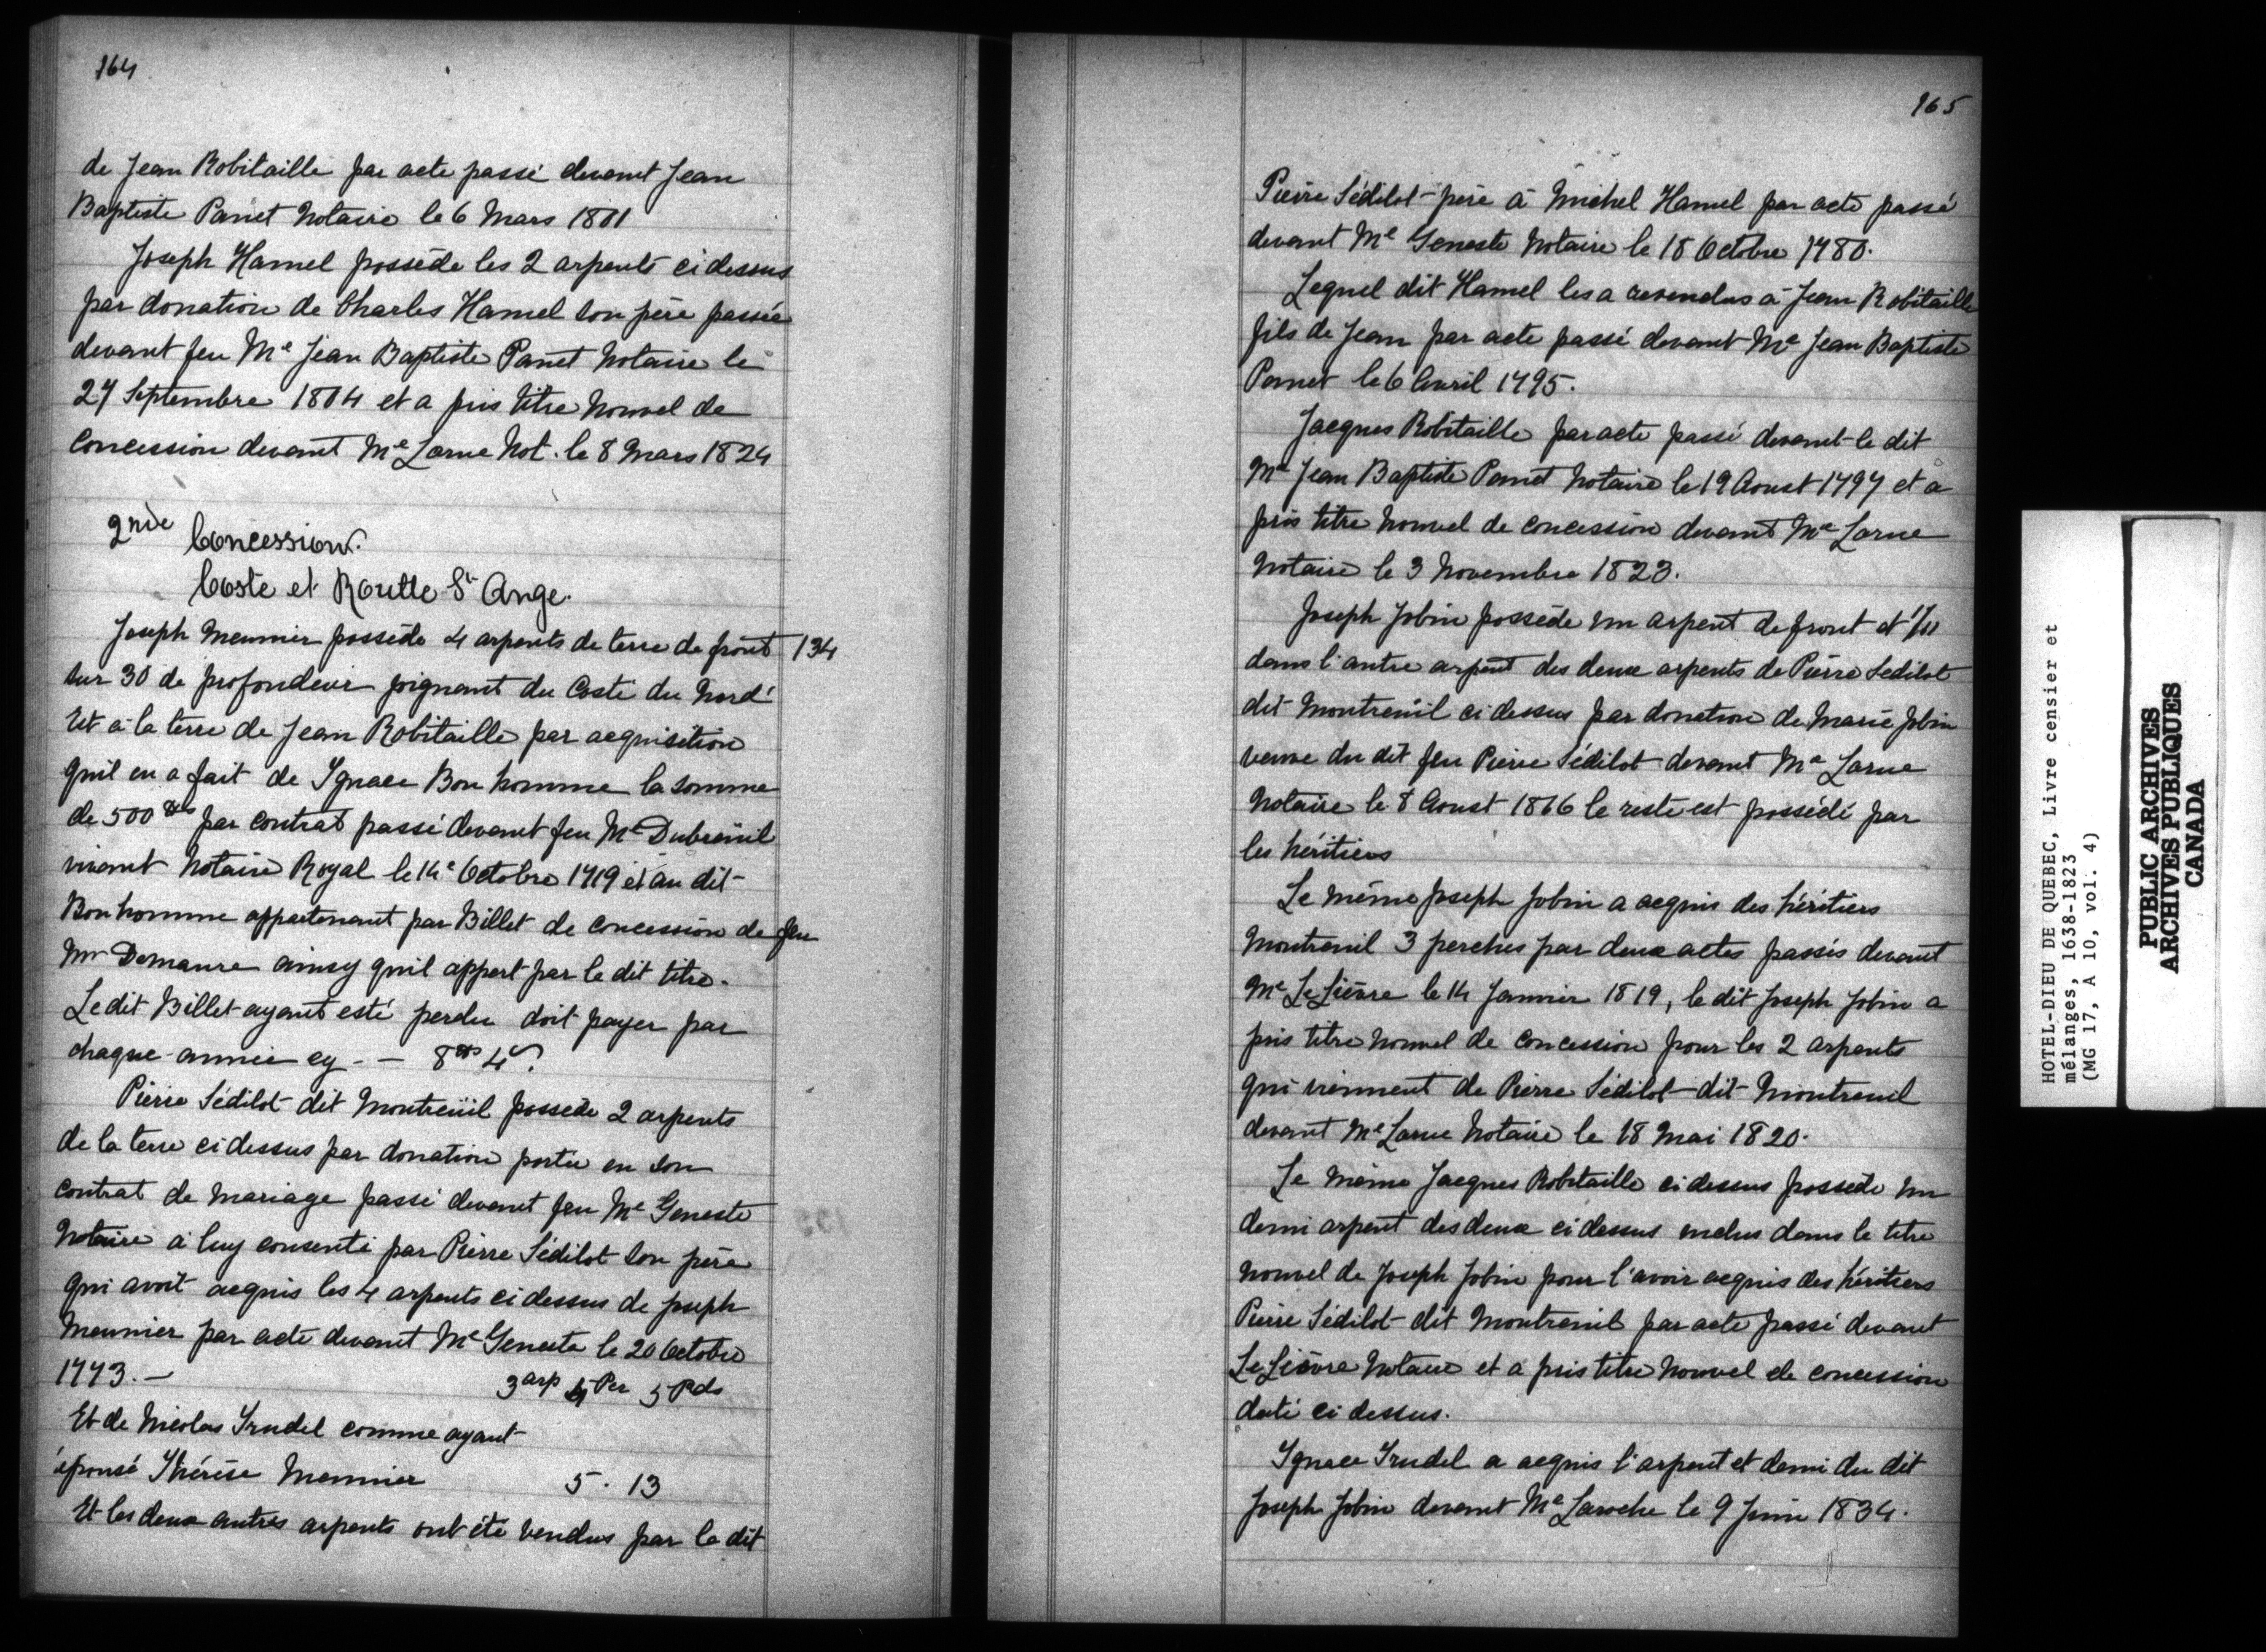 164
de Jean Robitaille par acte passé devant Jean
Baptiste Panet Notaire le 6 Mars 1801
Joseph Hamel possède les 2 arpents ci dessus
par donation de Charles Hamel son père passée
devant feu Me Jean Baptiste Panet Notaire le
27 Septembre 1804 et a pris titre nouvel de
Concession devant Me Larue Not. le 8 Mars 1824
2nde Concession.
Coste et Routte St Ange.
Joseph Meunier possède 4 arpents de terre de front 134
sur 30 de profondeur joignant du Costé du Nord
Est à la terre de Jean Robitaille par acquisition
quil en a fait de Ignace Bonhomme la somme
de 500 par contrat passé devant feu Me Dubreüil
vivant Notaire Royal le 14e Octobre 1719 et au dit
Bonhomme appartenant par Billet de concession de feu
Mr Demaure ainsy quil appert par le dit titre.
Le dit Billet ayant esté perdu doit payer par
chaque année cy - - 8 4s
Pierre Sédilot dit Montreüil possède 2 arpents
de la terre ci dessus par donation portée en son
contrat de mariage passé devant feu Me Geneste
Notaire à luy consenti par Pierre Sédilot son père
qui avoit acquis les 4 arpents ci dessus de Joseph
Meunier par acte devant Me Geneste le 20 Octobre
1773. - 3 arp 4 Per 5 Pds
Et de Nicolas Trudel comme ayant
épousé Thérèse Meunier 5 . 13
Et les deux autres arpents ont été vendus par le dit
165
Pierre Sédilot père à Michel Hamel par acte passé
devant Me Geneste Notaire le 15 Octobre 1780.
Lequel dit Hamel les a revendus à Jean Robitaille
fils de Jean par acte passé devant Me Jean Baptiste
Panet le 6 Avril 1795.
Jacques Robitaille par acte passé devant le dit
Me Jean Baptiste Panet Notaire le 19 Aoust 1797 et a
pris titre nouvel de concession devant Me Larue
Notaire le 3 Novembre 1823.
Joseph Jobin possède un arpent de front et 1/11
dans l'autre arpent des deux arpents de Pierre Sedilot
dit Montreüil ci dessus par donation de Marie Jobin
veuve du dit feu Pierre Sédilot devant Me Larue
Notaire le 8 Aoust 1816 le reste est possédé par
les héritiers
Le même Joseph Jobin a acquis des héritiers
Montreuil 3 perches par deux actes passés devant
Me LeLièvre le 14 Janvier 1819, le dit Joseph Jobin a
pris titre nouvel de concession pour les 2 arpents
qui viennent de Pierre Sédilot dit Montreuil
devant Me Larue Notaire le 18 Mai 1820.
Le même Jacques Robitaille ci dessus possède un
demi arpent des deux ci dessus inclus dans le titre
nouvel de Joseph Jobin pour l'avoir acquis des héritiers
Pierre Sédilot dit Montreuil par acte passé devant
LeLièvre Notaire et a pris titre nouvel de concession
daté ci dessus.
Ignace Trudel a acquis l'arpent et demi du dit
Joseph Jobin devant Me Laroche le 9 Juin 1834.
HOTEL-DIEU DE QUEBEC, Livre censier et
mélanges, 1638-1823
(MG 17, A 10, vol. 4)
PUBLIC ARCHIVES
ARCHIVES PUBLIQUES
CANADA